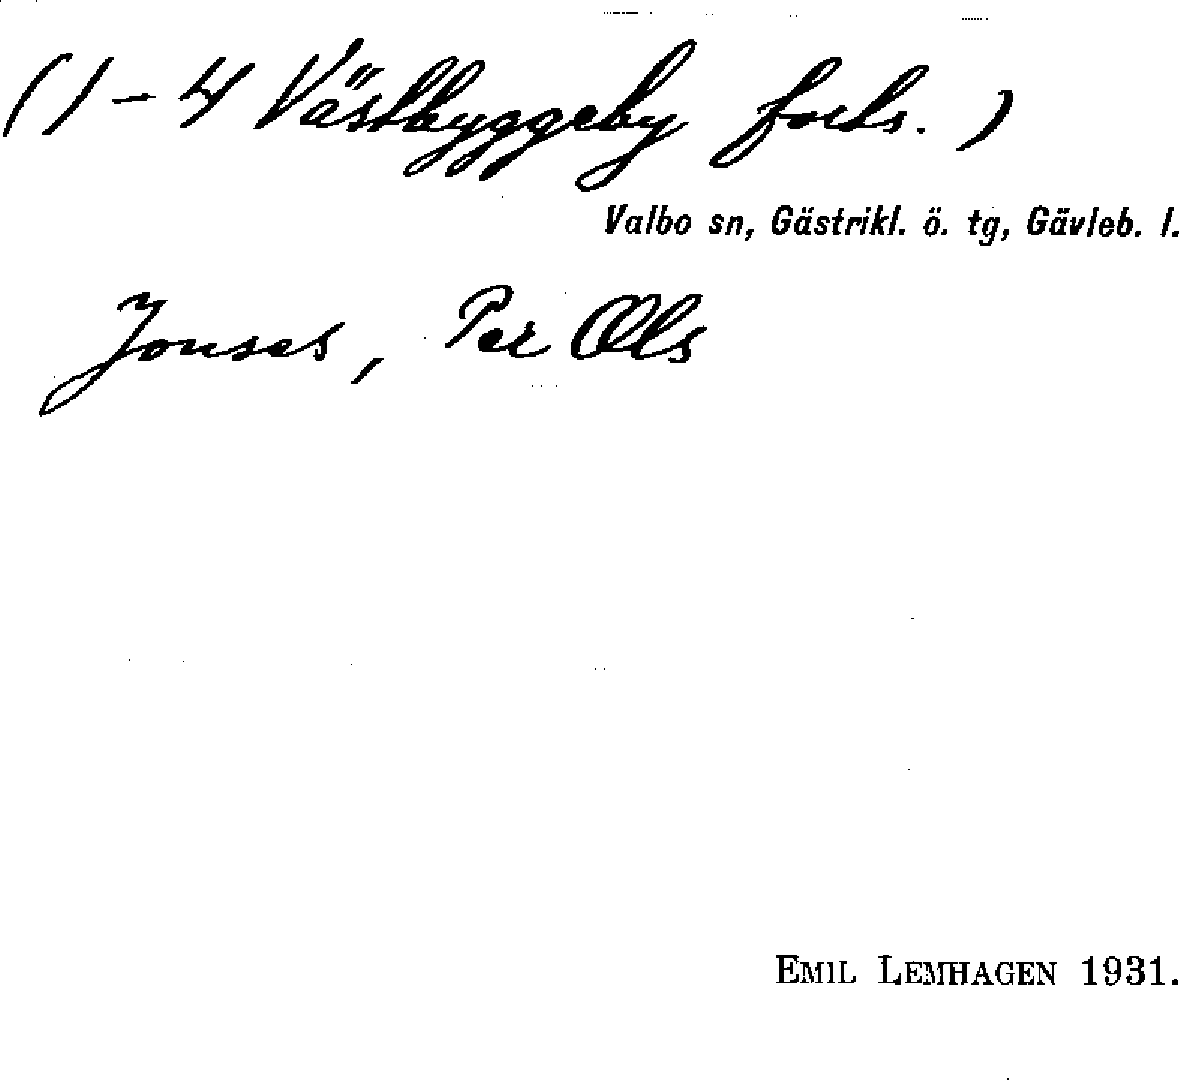 (1-4 Västbyggeby forts.)
Valbo sn, Gästrikl. ö. tg, Gävleb. l.
Jonses, Per Ols
EMIL LEMHAGEN 1931.